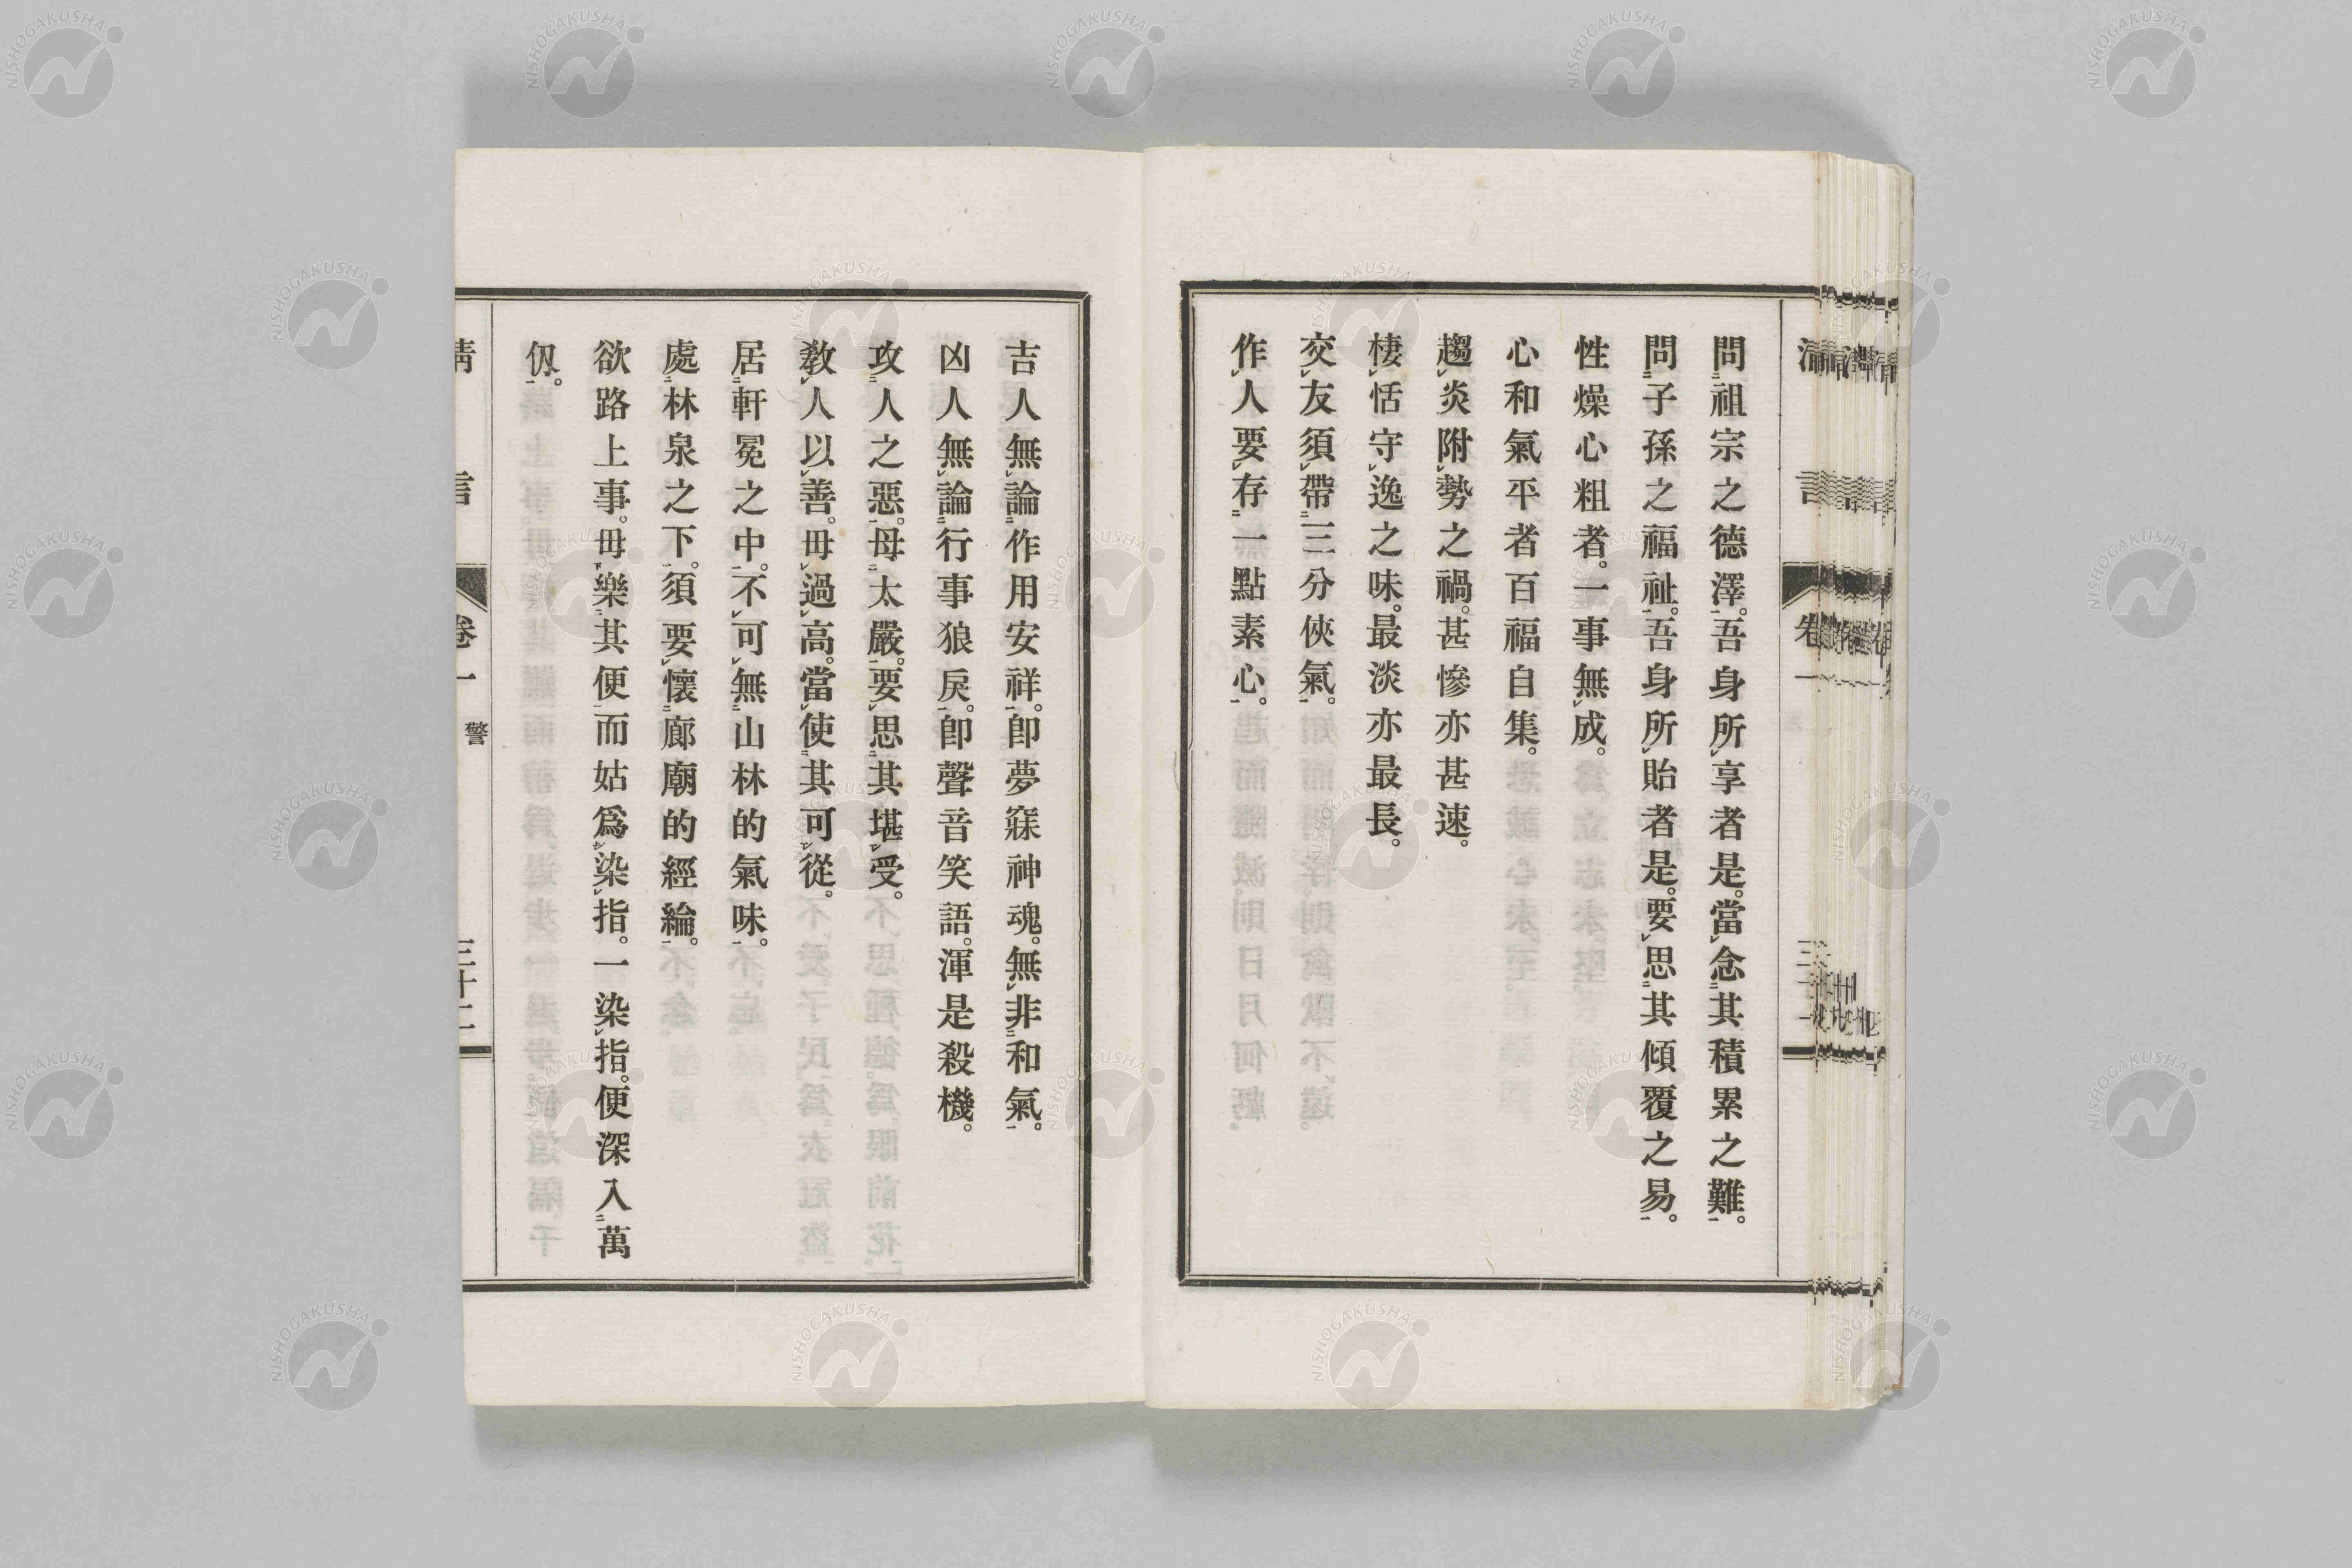 問祖宗之德澤。吾身所享者是。當念其積累之難。
問子孫之福祉。吾身所貽者是。要思其傾覆之易。
性燥心粗者。一事無成。
心和氣平者百福自集。
趨炎附勢之禍。甚慘亦甚速。
棲恬守逸之味。最淡亦最長。
交友須帶三分俠氣。
作人要存一點素心。
吉人無論作用安祥。卽夢寐神魂。無非和氣。
凶人無論行事狼戾。卽聲音笑語。渾是殺機。
攻人之惡。毋太嚴。要思其堪受。
教人以善。毋過高。當使其可從。
居軒冕之中。不可無山林的氣味。
處林泉之下。須要懷廊廟的經綸。
欲路上事。毋樂其便而姑爲染指。一染指。便深入萬
仭。
清言 卷一 警 三十二
NISHOGAKUSHA